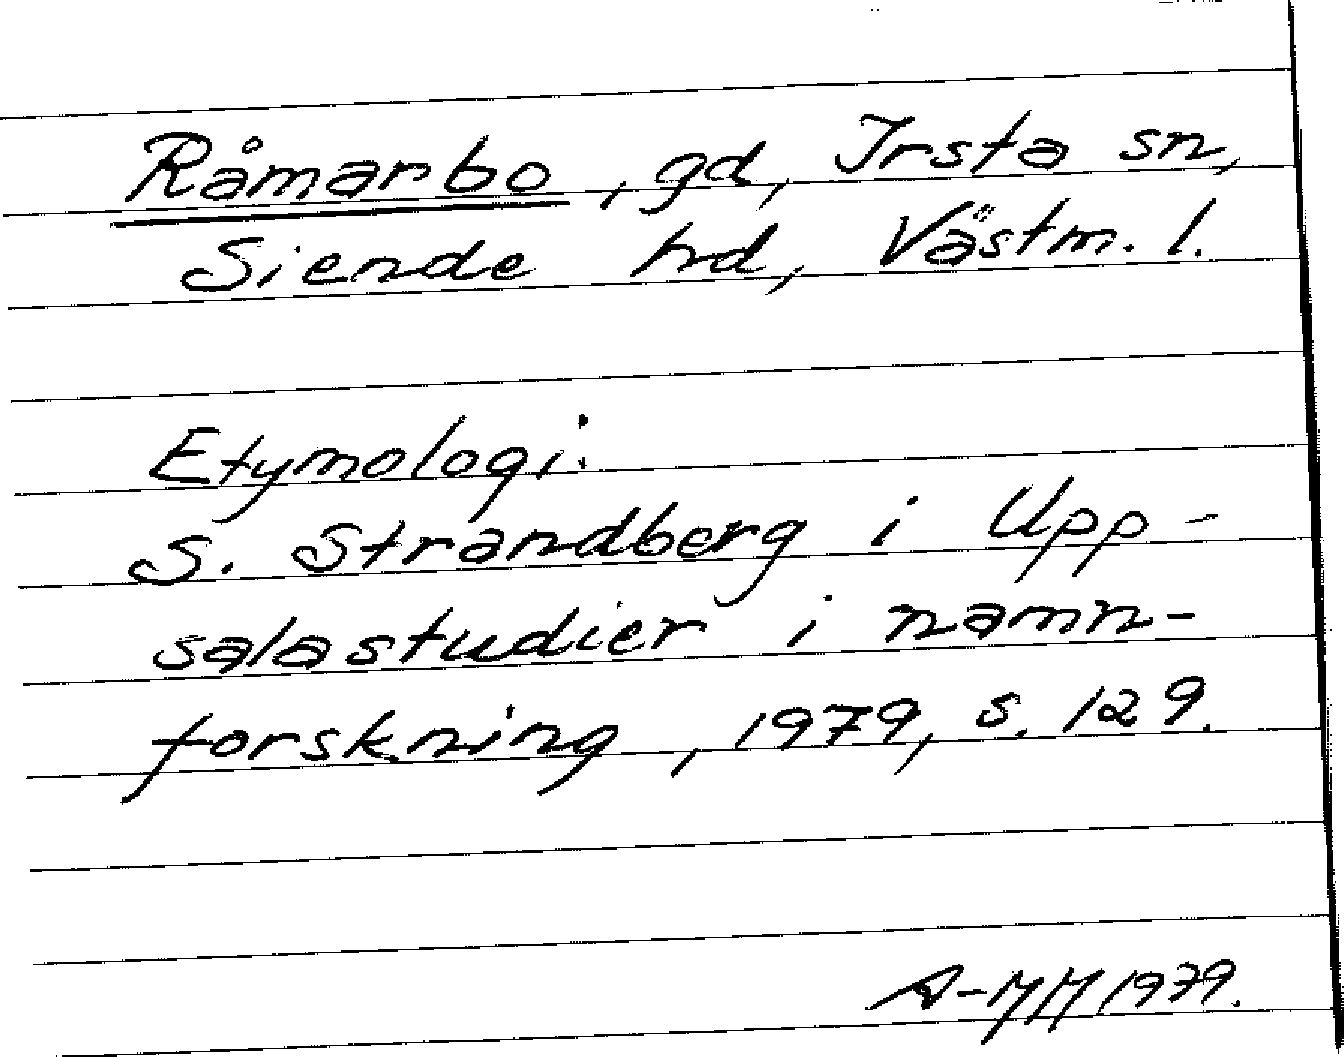 Råmarbo, gd, Irsta sn,
Siende hd, Västm. l.
Etymologi:
S. Strandberg i Upp-
salastudier i namn-
forskning, 1979, s. 129.
A-MM 1979.